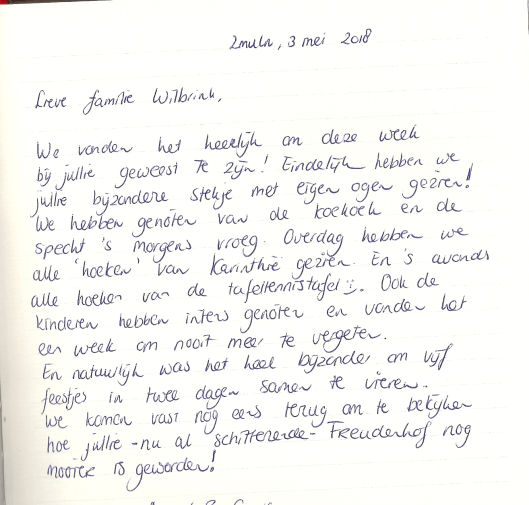 Zmuln, 3 mei 2018
Lieve familie Wilbrink,
We vonden het heerlijk om deze week
bij jullie geweest te zijn! Eindelijk hebben we
jullie bijzondere stekje met eigen ogen gezien!
We hebben genoten van de koekoek en de
specht 's morgens vroeg. Overdag hebben we
alle 'hoeken' van Karinthië gezien. En 's avonds
alle hoeken van de tafeltennistafel :). Ook de
kinderen hebben intens genoten en vonden het
een week om nooit meer te vergeten.
En natuurlijk was het heel bijzonder om vijf
feestjes in twee dagen samen te vieren.
We komen vast nog eens terug om te bekijken
hoe jullie - nu al schitterende - Freuderhof nog
mooier is geworden!